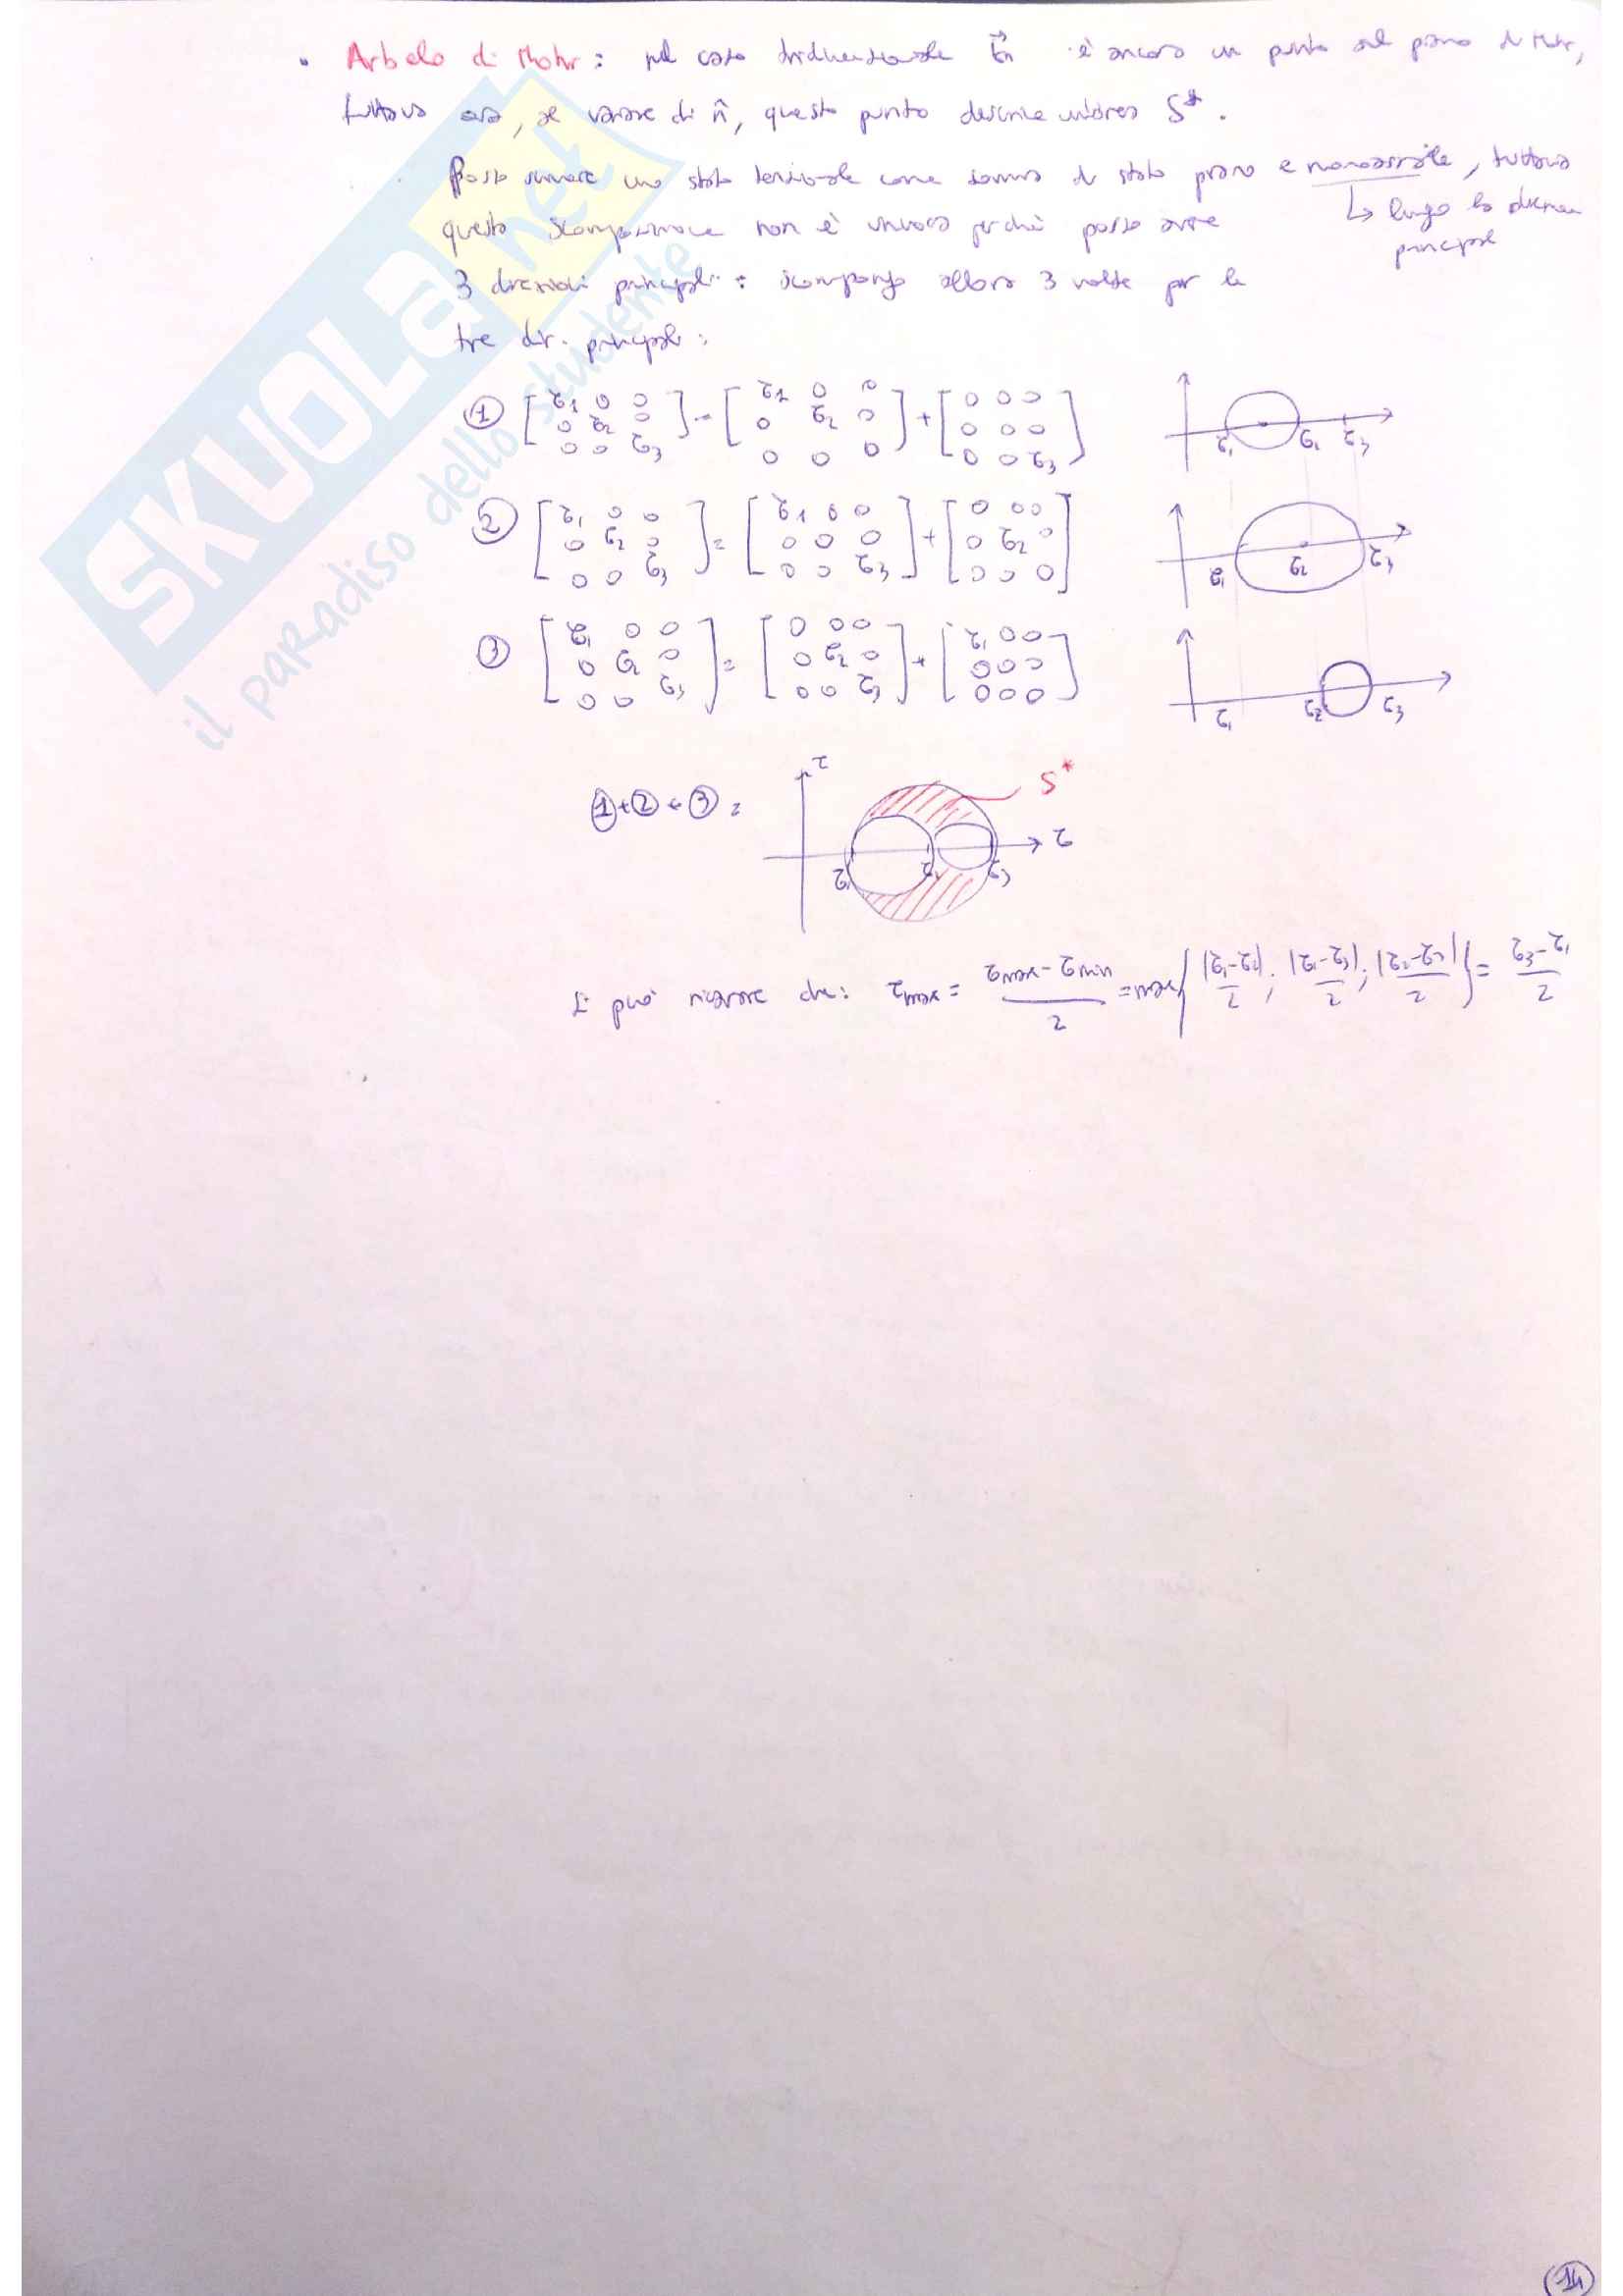 • Arbelo di Mohr: nel caso tridimensionale t⃗n è ancora un punto sul piano di Mohr,
tuttavia ora, al variare di n̂, questo punto descrive un'area S*.
Posso scrivere uno stato tensionale come somma di stato piano e monoassiale, tuttavia
↳ lungo la direzione
principale
questa scomposizione non è univoca perché posso avere
3 direzioni principali: scompongo allora 3 volte per le
tre dir. principali:
① [σ1 0 0; 0 σ2 0; 0 0 σ3] = [σ1 0 0; 0 σ2 0; 0 0 0] + [0 0 0; 0 0 0; 0 0 σ3]
② [σ1 0 0; 0 σ2 0; 0 0 σ3] = [σ1 0 0; 0 0 0; 0 0 σ3] + [0 0 0; 0 σ2 0; 0 0 0]
σ1 σ2 σ3
③ [σ1 0 0; 0 σ2 0; 0 0 σ3] = [0 0 0; 0 σ2 0; 0 0 σ3] + [σ1 0 0; 0 0 0; 0 0 0]
σ1 σ2 σ3
τ S*
①+②+③ =
σ
σ1 σ2 σ3
Si può ricavare che: τmax = (σmax - σmin)/2 = max{|σ1-σ2|/2; |σ1-σ3|/2; |σ2-σ3|/2} = (σ3-σ1)/2
SKUOLA.net
il paradiso dello studente
14